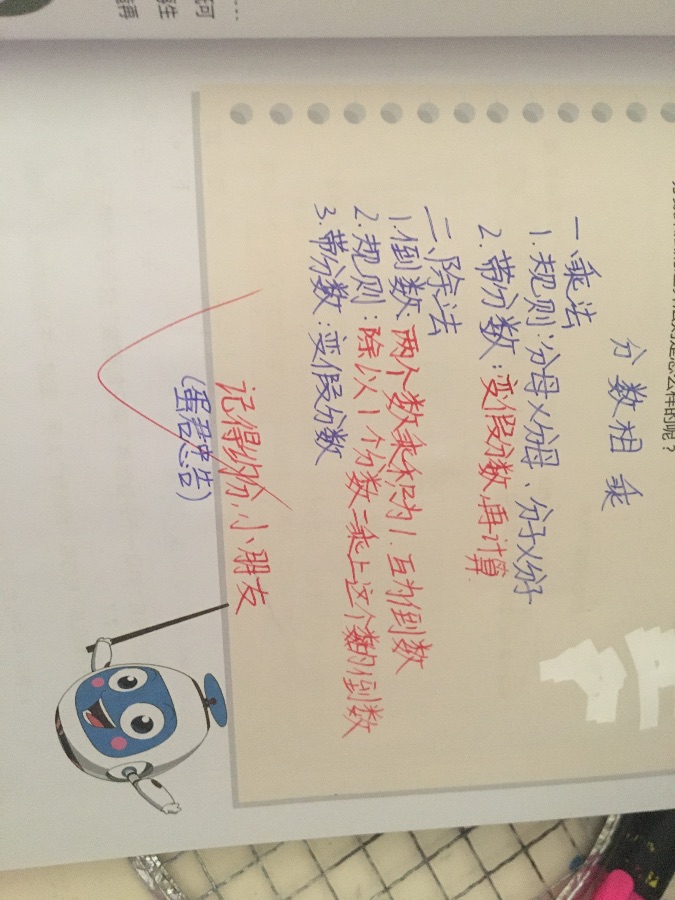 是怎么样的呢？
分数相乘
一乘法
1.规则:分母×分母、分子×分子
2.带分数:变假分数,再计算
二、除法
1.倒数 两个数乘积为1.互为倒数
2.规则:除以1个分数=乘上这个数的倒数
3.带分数:变假分数
记得约分,小朋友
(蛋君忠告)